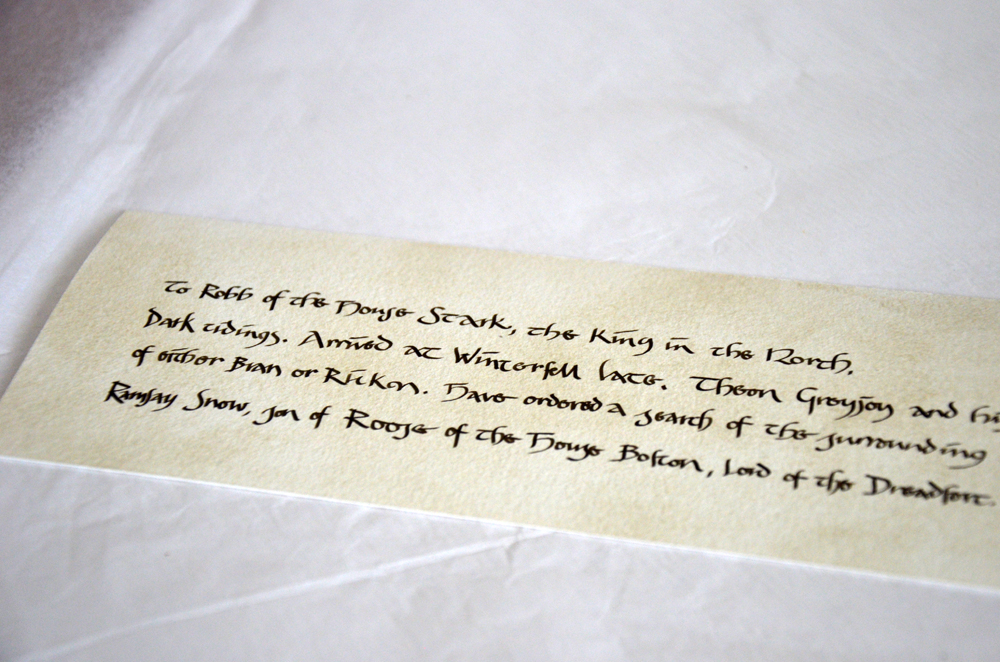 To Robb of the House Stark, the King in the North,
Dark tidings. Arrived at Winterfell late. Theon Greyjoy and hi
of either Bran or Rickon. Have ordered a search of the surrounding
Ramsay Snow, son of Roose of the House Bolton, Lord of the Dreadfort.